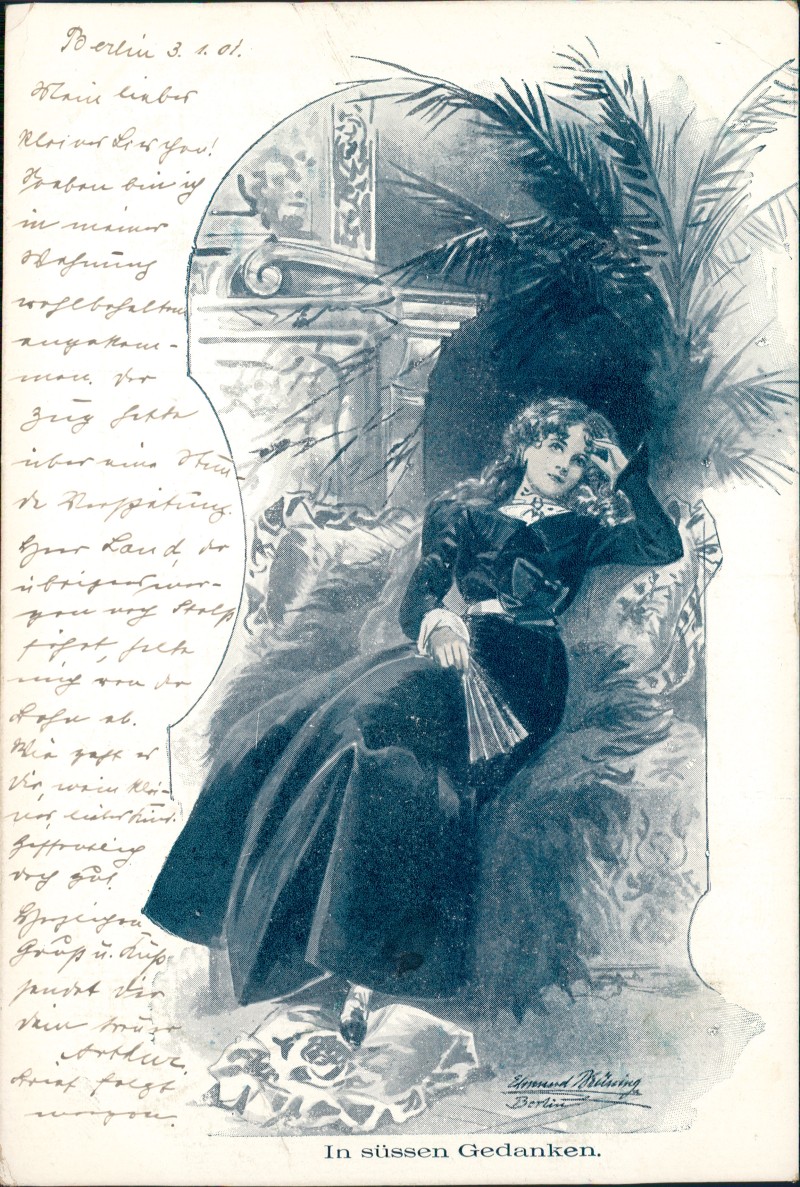 Berlin 3.1.01.
Mein lieber
kleines Lieschen!
Soeben bin ich
in meiner
Wohnung
wohlbehalten
angekom-
men. Der
Zug hatte
über eine Stun-
de Verspätung.
Herr Land, der
übrigens mor-
gen nach Stolp
fährt, holte
mich von der
Bahn ab.
Wie geht es
Dir, mein klei-
nes, liebes Kind.
Hoffentlich
doch gut.
Herzlichen
Gruß u. Kuß
sendet Dir
Dein treuer
Arthur.
Brief folgt
morgen.
Edmund
Berlin
In süssen Gedanken.